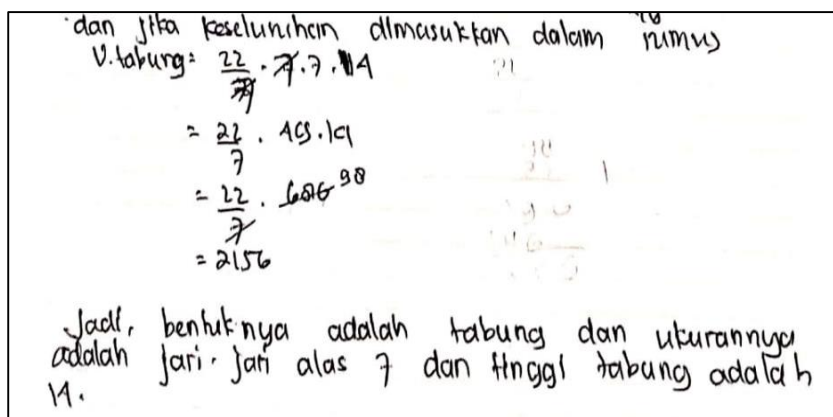 dan jika keseluruhan dimasukkan dalam rumus
V.tabung = 22/7 . 7 . 7 . 14
= 22/7 . 49 . 14
= 22/7 . 686 98
= 2156
Jadi, bentuknya adalah tabung dan ukurannya
adalah jari-jari alas 7 dan tinggi tabung adalah
14.